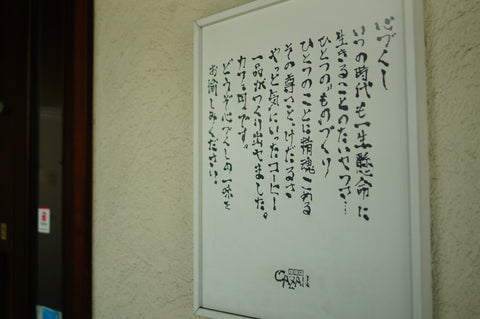 心づくし
いつの時代も一生懸命に
生きることのたいせつさ…
ひとつの“もの”づくり
ひとつのことに精魂こめる
その尊いこと、けだるさ。
やっと気にいったコーヒー
一品がつくり出せました。
カフェ・叫です。
どうぞ心づくしの一味を
お愉しみください。